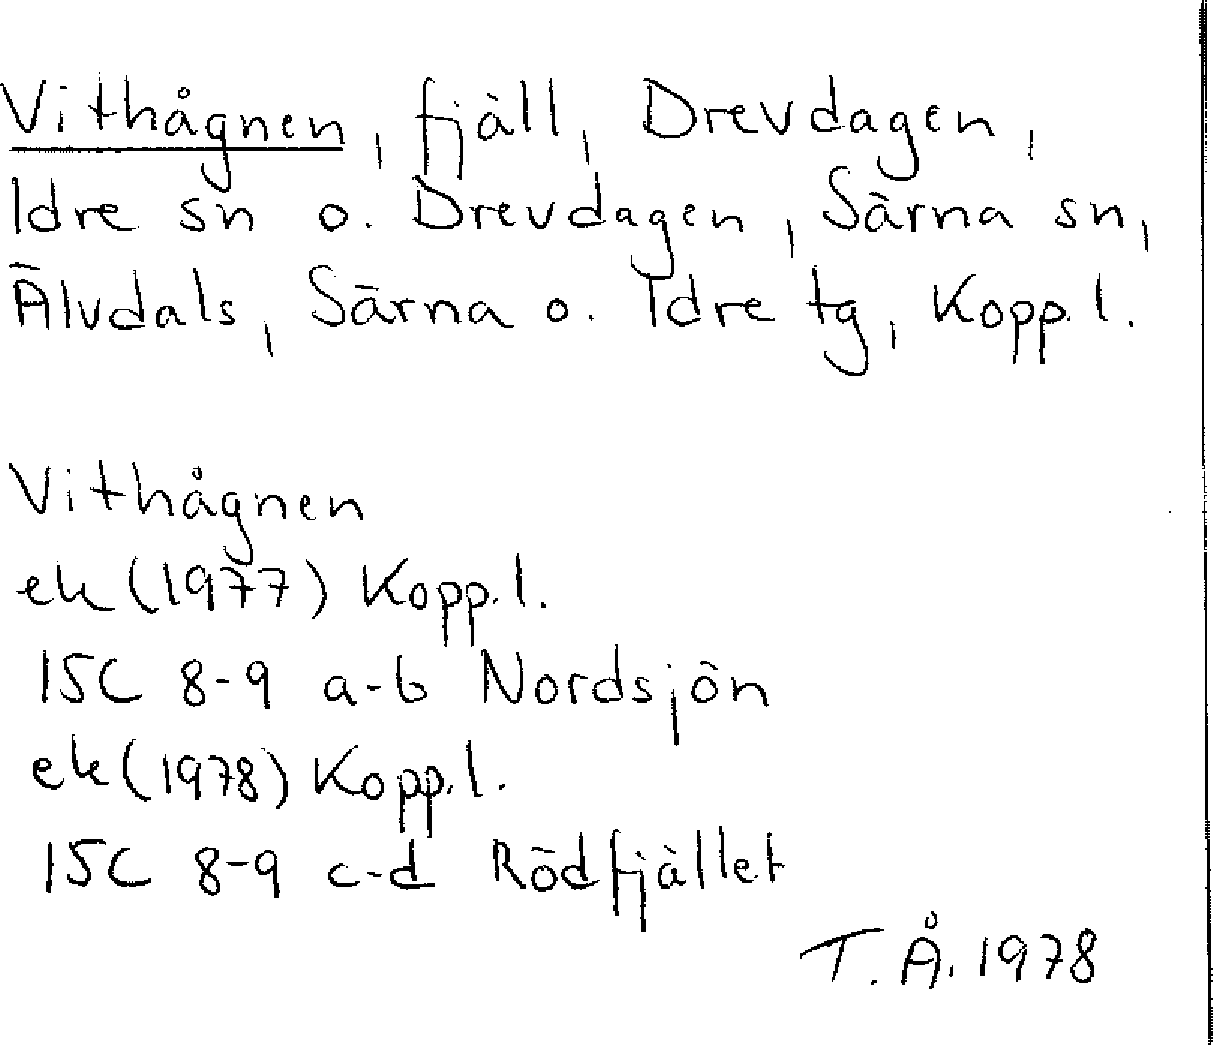 Vithågnen, fjäll, Drevdagen,
Idre sn o. Drevdagen, Särna sn,
Älvdals, Särna o. Idre tg, Kopp.l.
Vithågnen
ek (1977) Kopp.l.
15C 8-9 a-b Nordsjön
ek (1978) Kopp.l.
15C 8-9 c-d Rödfjället
T.Å. 1978